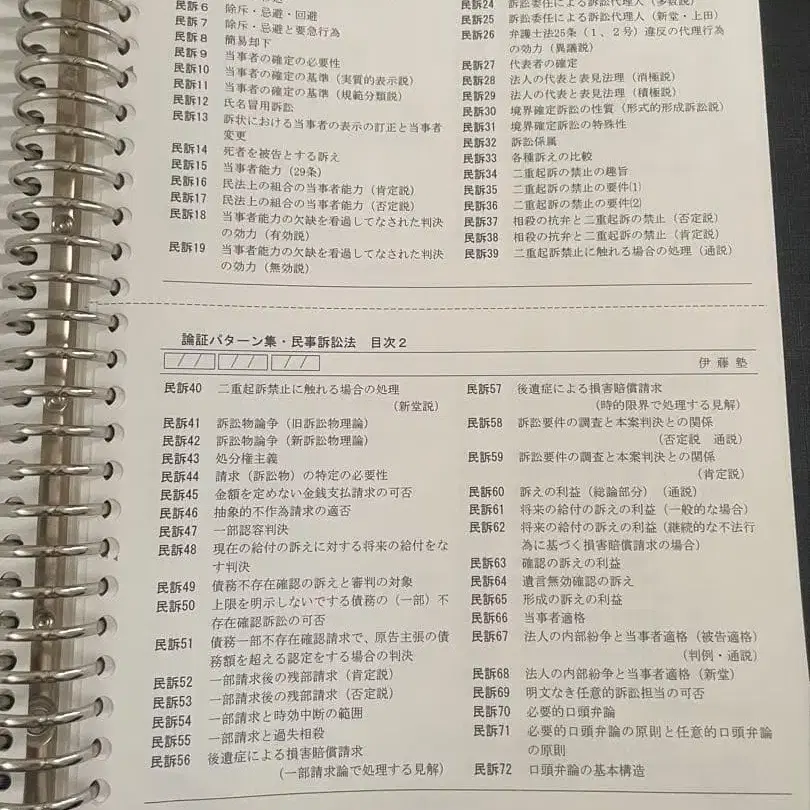 民訴6 除斥・忌避・回避
民訴7 除斥・忌避と要急行為
民訴8 簡易却下
民訴9 当事者の確定の必要性
民訴10 当事者の確定の基準（実質的表示説）
民訴11 当事者の確定の基準（規範分類説）
民訴12 氏名冒用訴訟
民訴13 訴状における当事者の表示の訂正と当事者
変更
民訴14 死者を被告とする訴え
民訴15 当事者能力（29条）
民訴16 民法上の組合の当事者能力（肯定説）
民訴17 民法上の組合の当事者能力（否定説）
民訴18 当事者能力の欠缺を看過してなされた判決
の効力（有効説）
民訴19 当事者能力の欠缺を看過してなされた判決
の効力（無効説）
民訴24 訴訟委任による訴訟代理人（多数説）
民訴25 訴訟委任による訴訟代理人（新堂・上田）
民訴26 弁護士法25条（1、2号）違反の代理行為
の効力（異議説）
民訴27 代表者の確定
民訴28 法人の代表と表見法理（消極説）
民訴29 法人の代表と表見法理（積極説）
民訴30 境界確定訴訟の性質（形式的形成訴訟説）
民訴31 境界確定訴訟の特殊性
民訴32 訴訟係属
民訴33 各種訴えの比較
民訴34 二重起訴の禁止の趣旨
民訴35 二重起訴の禁止の要件⑴
民訴36 二重起訴の禁止の要件⑵
民訴37 相殺の抗弁と二重起訴の禁止（否定説）
民訴38 相殺の抗弁と二重起訴の禁止（肯定説）
民訴39 二重起訴禁止に触れる場合の処理（通説）
論証パターン集・民事訴訟法 目次2
/ / / / / /
伊藤塾
民訴40 二重起訴禁止に触れる場合の処理
（新堂説）
民訴41 訴訟物論争（旧訴訟物理論）
民訴42 訴訟物論争（新訴訟物理論）
民訴43 処分権主義
民訴44 請求（訴訟物）の特定の必要性
民訴45 金額を定めない金銭支払請求の可否
民訴46 抽象的不作為請求の適否
民訴47 一部認容判決
民訴48 現在の給付の訴えに対する将来の給付をな
す判決
民訴49 債務不存在確認の訴えと審判の対象
民訴50 上限を明示しないでする債務の（一部）不
存在確認訴訟の可否
民訴51 債務一部不存在確認請求で、原告主張の債
務額を超える認定をする場合の判決
民訴52 一部請求後の残部請求（肯定説）
民訴53 一部請求後の残部請求（否定説）
民訴54 一部請求と時効中断の範囲
民訴55 一部請求と過失相殺
民訴56 後遺症による損害賠償請求
（一部請求論で処理する見解）
民訴57 後遺症による損害賠償請求
（時的限界で処理する見解）
民訴58 訴訟要件の調査と本案判決との関係
（否定説 通説）
民訴59 訴訟要件の調査と本案判決との関係
（肯定説）
民訴60 訴えの利益（総論部分）（通説）
民訴61 将来の給付の訴えの利益（一般的な場合）
民訴62 将来の給付の訴えの利益（継続的な不法行
為に基づく損害賠償請求の場合）
民訴63 確認の訴えの利益
民訴64 遺言無効確認の訴え
民訴65 形成の訴えの利益
民訴66 当事者適格
民訴67 法人の内部紛争と当事者適格（被告適格）
（判例・通説）
民訴68 法人の内部紛争と当事者適格（新堂）
民訴69 明文なき任意的訴訟担当の可否
民訴70 必要的口頭弁論
民訴71 必要的口頭弁論の原則と任意的口頭弁論
の原則
民訴72 口頭弁論の基本構造